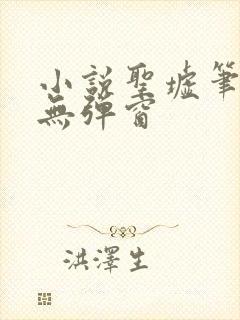 小說聖墟筆
無彈窗
洪澤生